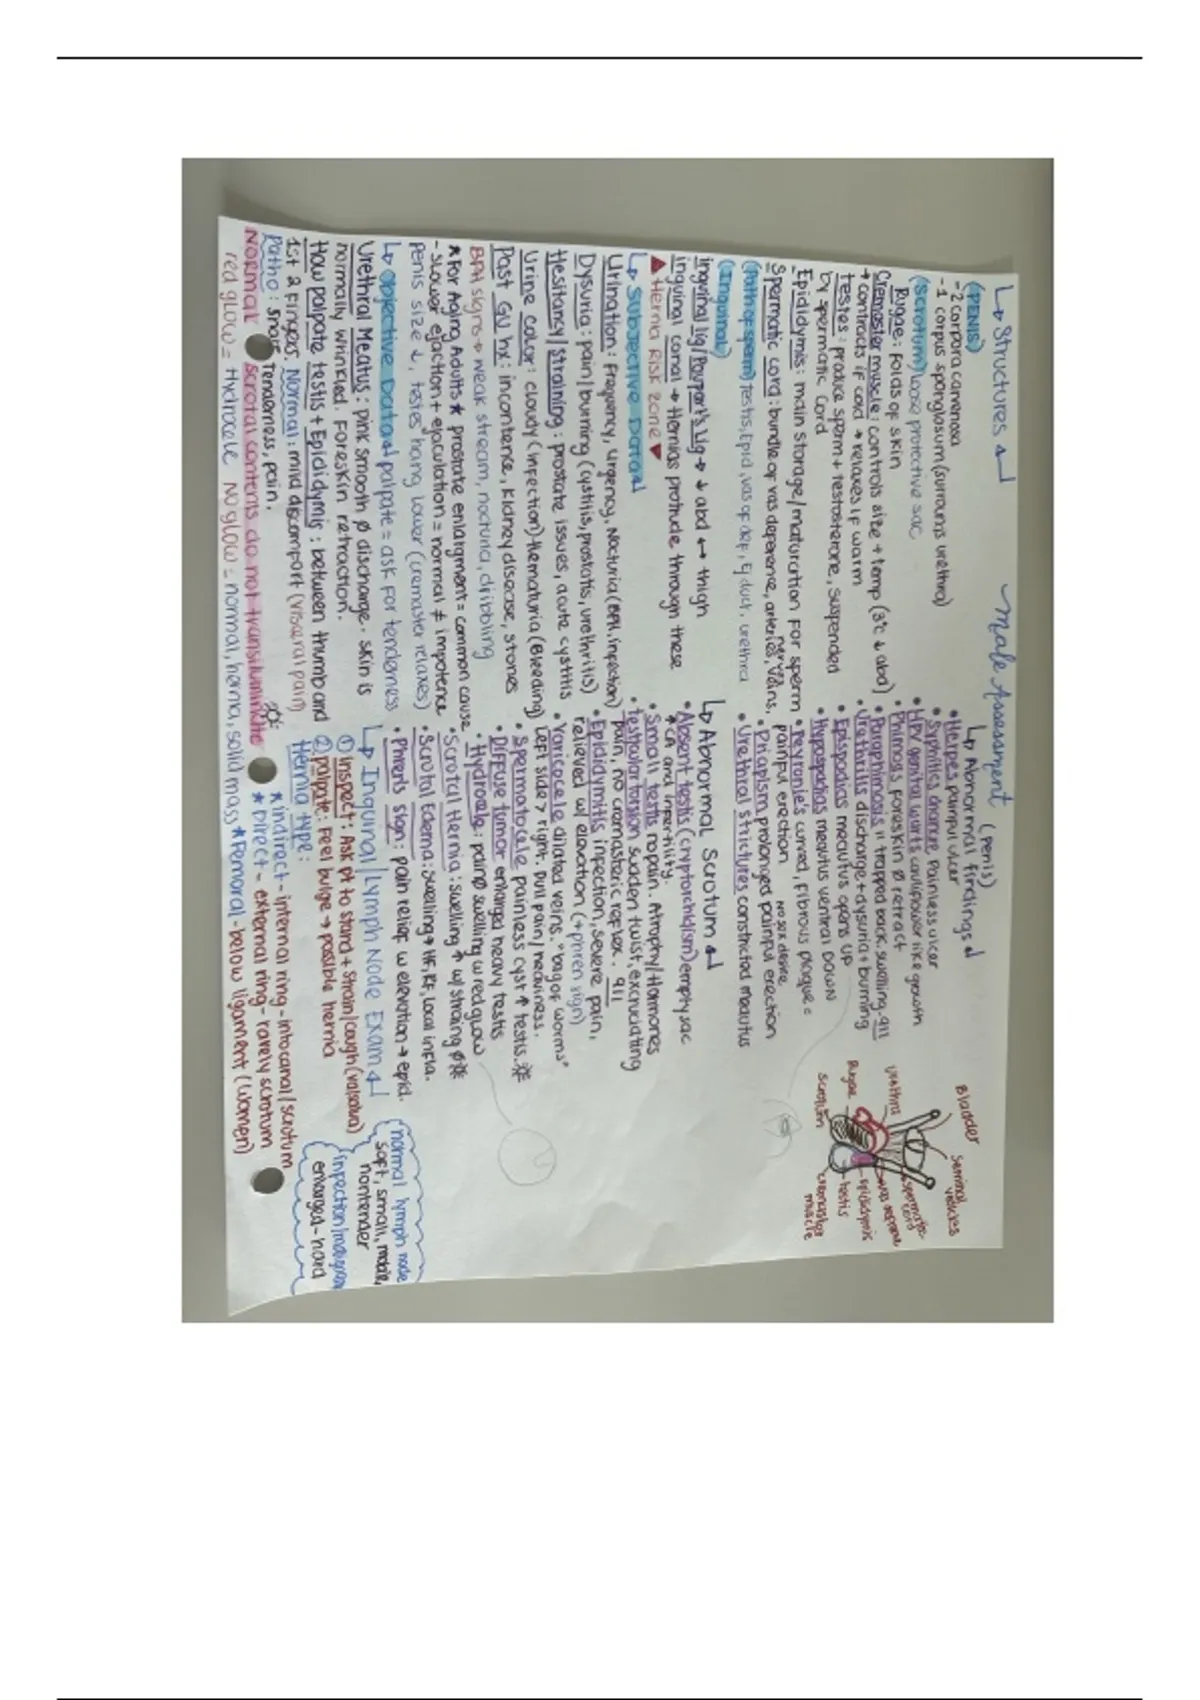 Male Assessment
↳ Structures ↲
(PENIS)
- 2 corpora cavernosa
- 1 corpus spongiosum (surrounds urethra)
(scrotum) loose protective sac
Rugae: Folds of skin
Cremaster muscle: controls size + temp (3°C ↓ abd)
→ contracts if cold → relaxes if warm
Testes: produce sperm + testosterone, suspended
by spermatic cord
Epididymis: main storage/maturation for sperm
Spermatic cord: bundle of vas deference, arteries, veins,
nerves
(Path of sperm) testis, Epid, vas of def, Ej duct, urethra
(Inguinal)
inguinal lig/Poupart's Lig → ↓ abd ↔ thigh
inguinal canal → Hernias protrude through these
▲ Hernia Risk zone ▼
↳ Subjective Data ↲
Urination: Frequency, urgency, Nocturia (BPH, infection)
Dysuria: pain/burning (cystitis, prostatis, urethritis)
Hesitancy/straining: prostate issues, acute cystitis
Urine color: cloudy (infection) Hematuria (Bleeding)
Past GU hx: incontence, kidney disease, stones
BPH signs → weak stream, nocturia, dribbling
* For Aging Adults * prostate enlargment = common cause
- slower ejaction + ejaculation = normal ≠ impotence
penis size ↓, testes hang lower (cremaster relaxes)
↳ Objective Data ↲ palpate = ask for tenderness
Urethral Meatus: pink smooth ∅ discharge. skin is
normally wrinkled. Foreskin retraction.
How palpate testis + Epididymis: between thumb and
1st 2 fingers. Normal: mild discomfort (visceral pain)
Patho: Tenderness, pain.
NORMAL Scrotal contents do not transiluminate
red glow = Hydrocele No glow = normal, hernia, solid mass
(penis)
↳ Abnormal findings ↲
• Herpes painful ulcer
• Syphilis chancre painless ulcer
• HPV genital warts cauliflower like growth
• Phimosis foreskin ∅ retract
• Paraphimosis 11 trapped back. swelling. 911
• Urethritis discharge + dysuria + burning
• Epispadias meautus opens UP
• Hypospadias meautus ventral DOWN
• Peyronie's curved, fibrous plaque =
painful erection
no sex desire
• Priapism prolonged painful erection
• Urethral strictures constricted meautus
↳ Abnormal Scrotum ↲
• Absent testis (cryptorchidism) empty sac
↑ CA and infertility.
• Small testis no pain. Atrophy/Hormones
• testicular torsion sudden twist, excruciating
pain, no cremasteric reflex. 911
• Epididymitis infection, severe pain,
relieved w/ elevation (+ phren sign)
• Varicocele dilated veins. "bag of worms"
Left side > right. Dull pain/heaviness.
• Spermatocele painless cyst ↑ testis.
• Diffuse tumor enlarged heavy testis
• Hydrocele: pain∅ swelling w red glow
• Scrotal Hernia: swelling ↑ w/ straing ∅
• Scrotal Edema: swelling → HF, RF, local infla.
• Phren's sign: pain relief w elevation → epid.
↳ Inguinal/Lymph Node Exam ↲
① Inspect: Ask pt to stand + strain/cough (valsalva)
② palpate: Feel bulge → possible hernia
Hernia type:
* indirect - internal ring - into canal/scrotum
* Direct - external ring - rarely scrotum
* Femoral - below ligament (women)
Bladder
Seminal
vesicles
urethra
spermatic
cord
vas defrene
epididymis
Rugae
testis
scrotum
cremaster
muscle
normal lymph node
soft, small, mobile,
nontender
enlarged - hard